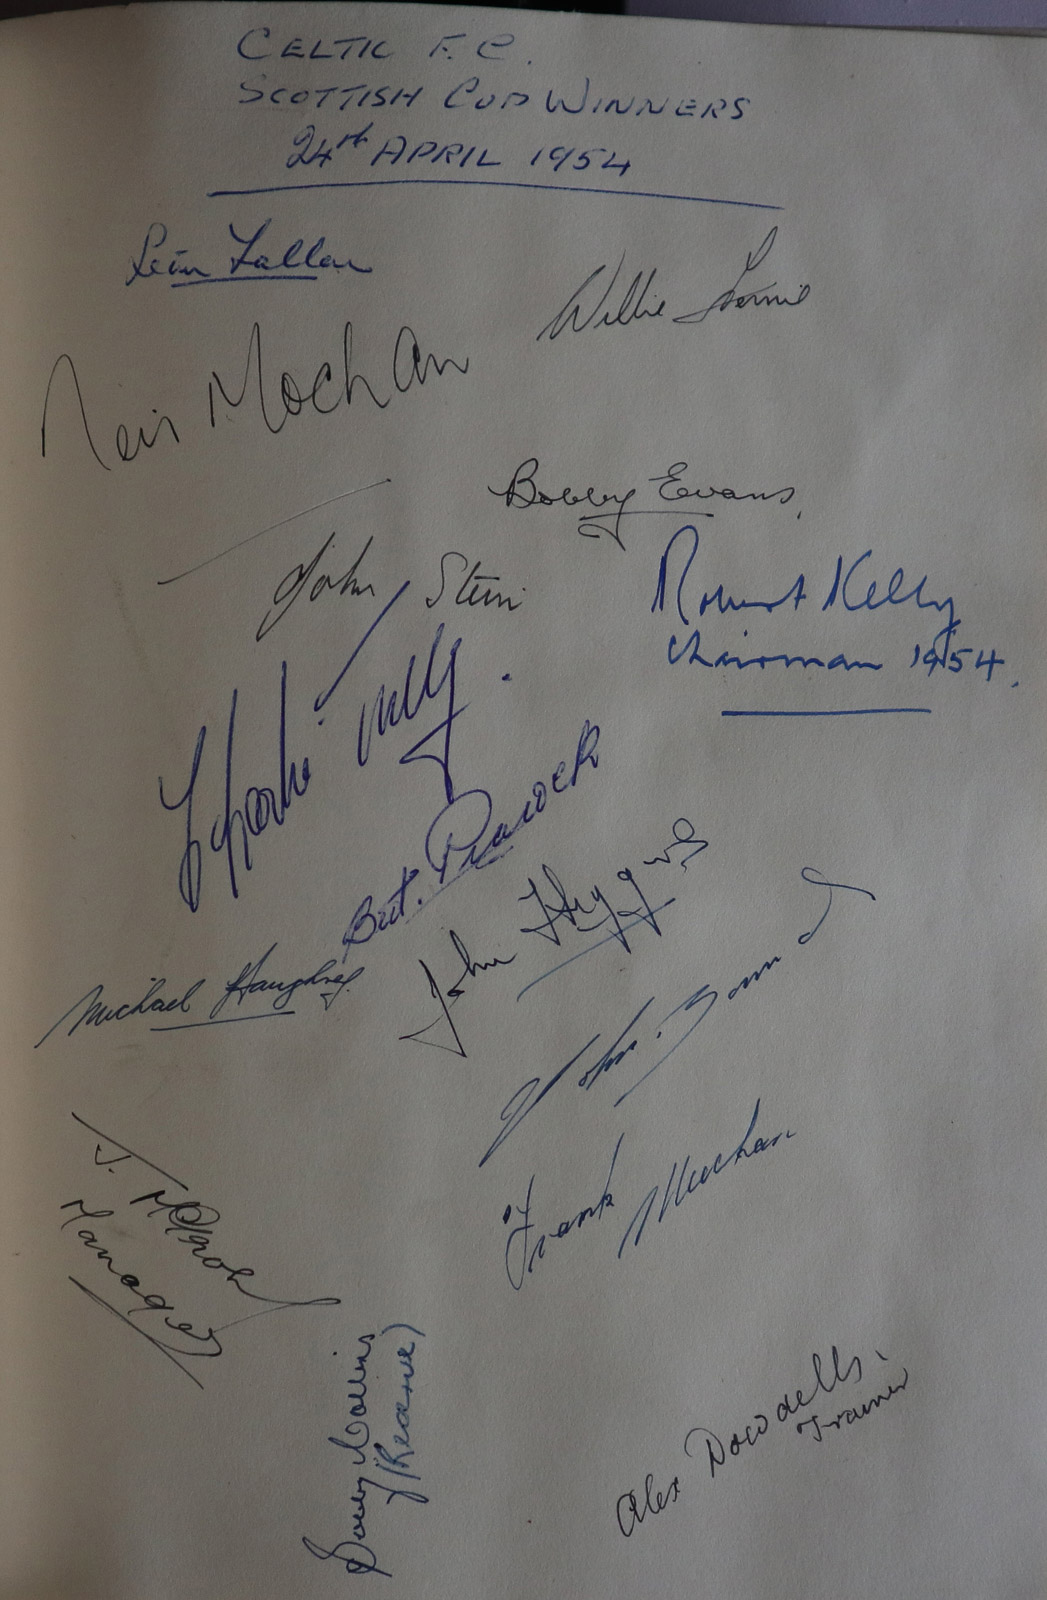 CELTIC F.C.
SCOTTISH CUP WINNERS
24th APRIL 1954
Seán Fallon
Willie Fernie
Neil Mochan
Bobby Evans.
John Stein
Robert Kelly
Chairman 1954.
Charlie Tully.
Bert. Peacock
John Higgins
Michael Haughney
John. Bonnar
Frank Meechan
J. McGrory
Manager
Bobby Collins
(Reserve)
Alex Dowdells.
Trainer